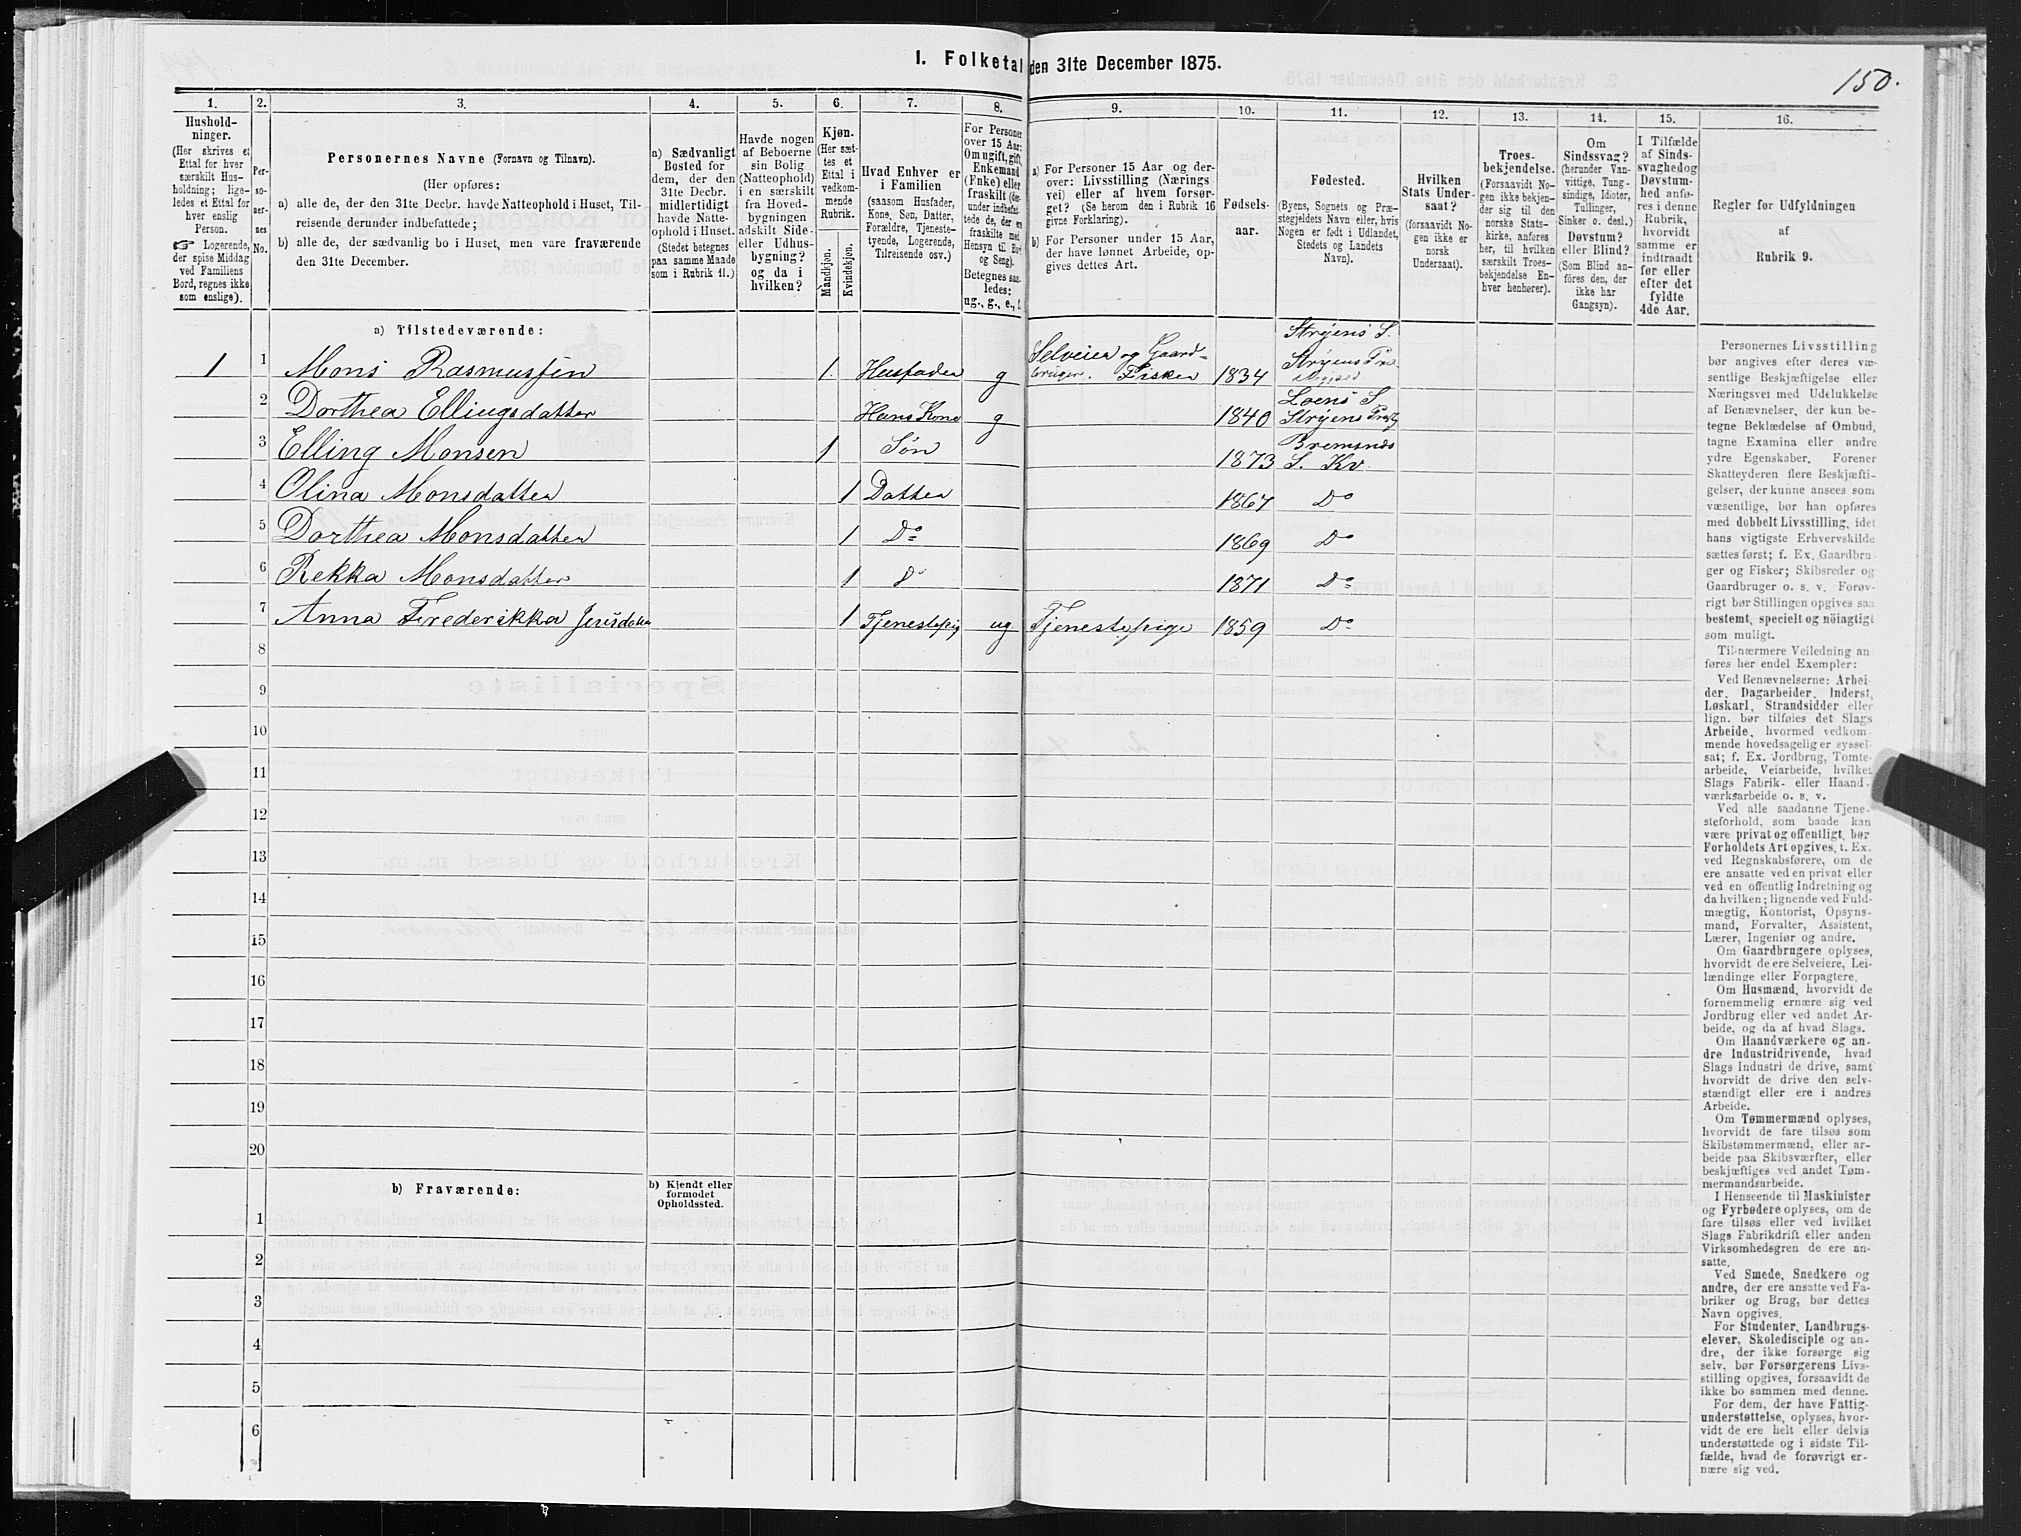 1. Folketal den 31te December 1875.
150.
1.
2.
3.
4.
5.
6.
7.
8.
9.
10.
11.
12.
13.
14.
15.
16.
Hushold-
ninger.
(Her skrives et
Ettal for hver
særskilt Hus-
holdning; lige-
ledes et Ettal for
hver enslig
Person.
☞ Logerende,
der spise Middag
ved Familiens
Bord, regnes ikke
som enslige).
Per-
so-
ner-
nes
No.
Personernes Navne (Fornavn og Tilnavn).
(Her opføres:
a) alle de, der den 31te Decbr. havde Natteophold i Huset, Til-
reisende derunder indbefattede;
b) alle de, der sædvanlig bo i Huset, men vare fraværende
den 31te December.
a) Sædvanligt
Bosted for
dem, der den
31te Decbr.
midlertidigt
havde Natte-
ophold i Huset.
(Stedet betegnes
paa samme Maade
som i Rubrik 11.)
Havde nogen
af Beboerne
sin Bolig
(Natteophold)
i en særskilt
fra Hoved-
bygningen
adskilt Side-
eller Udhus-
bygning?
og da i
hvilken?
Kjøn.
(Her sæt-
tes et
Ettal i
vedkom-
mende
Rubrik.
Mandkjøn.
Kvindekjøn.
Hvad Enhver er
i Familien
(saasom Husfader,
Kone, Søn, Datter,
Forældre, Tjeneste-
tyende, Logerende,
Tilreisende osv.)
For Personer
over 15 Aar:
Om ugift, gift,
Enkemand
(Enke) eller
fraskilt (der-
under indbefat-
tede de, der ere
fraskilte med
Hensyn til Bord
og Seng).
Betegnes saa-
ledes:
ug., g., e., f.
a) For Personer 15 Aar og der-
over: Livsstilling (Nærings-
vei) eller af hvem forsør-
get? (Se herom den i Rubrik 16
givne Forklaring).
b) For Personer under 15 Aar,
der have lønnet Arbeide, op-
gives dettes Art.
Fødsels-
aar.
Fødested.
(Byens, Sognets og Præ-
stegjeldets Navn eller, hvis
Nogen er født i Udlandet,
Stedets og Landets
Navn).
Hvilken
Stats Under-
saat?
(forsaavidt No-
gen ikke er
norsk
Undersaat).
Troes-
bekjendelse.
(Forsaavidt No-
gen ikke bekjen-
der sig til den
norske Stats-
kirke, anføres
her, til hvilken
særskilt Troes-
bekjendelse En-
hver henhører).
Om
Sindssvag?
(herunder Van-
vittige, Tung-
sindige, Idioter,
Tullinger,
Sinker o. desl.)
Døvstum?
eller Blind?
(Som Blind an-
føres den, der
ikke har
Gangsyn).
I Tilfælde
af Sinds-
svaghed og
Døvstum-
hed anfø-
res i denne
Rubrik,
hvorvidt
samme er
indtraadt
før eller
efter det
fyldte
4de Aar.
Regler for Udfyldningen
af
Rubrik 9.
a) Tilstedeværende:
1 1 Mons Rasmussen 1. Husfader g Selveier og Gaard-
bruger. Fisker 1834 Stryens S.
Stryens Præ
2 Dorthea Ellingsdatter Hans Kone g 1840 Loens S.
Stryens Prstg
3 Elling Monsen 1 Søn 1873 Bremsnes
S. Kv.
4 Olina Monsdatter 1 Datter 1867 Do
5 Dorthea Monsdatter 1 Do 1869 Do
6 Rekka Monsdatter 1 Do 1871 Do
7 Anna Frederikka Jensdatter 1 Tjenestepig ug Tjenestepige 1859 Do
8
9
10
11
12
13
14
15
16
17
18
19
20
b) Fraværende:
b) Kjendt eller
formodet
Opholdssted.
1
2
3
4
5
6
Personernes Livsstilling
bør angives efter deres væ-
sentlige Beskjæftigelse eller
Næringsvei med Udelukkelse
af Benævnelser, der kun be-
tegne Beklædelse af Ombud,
tagne Examina eller andre
ydre Egenskaber. Forener
Skatteyderen flere Beskjæfti-
gelser, der kunne ansees som
væsentlige, bør han opføres
med dobbelt Livsstilling, idet
hans vigtigste Erhvervskilde
sættes først; f. Ex. Gaardbru-
ger og Fisker; Skibsreder og
Gaardbruger o. s. v. Forøv-
rigt bør Stillingen opgives saa
bestemt, specielt og nöiagtigt
som muligt.
Til nærmere Veiledning an-
føres her endel Exempler:
Ved Benævnelserne: Arbei-
der, Dagarbeider, Inderst,
Løskarl, Strandsidder eller
lign. bør tilføies det Slags
Arbeide, hvormed vedkom-
mende hovedsagelig er syssel-
sat; f. Ex. Jordbrug, Tomte-
arbeide, Veiarbeide, hvilket
Slags Fabrik- eller Haand-
værksarbeide o. s. v.
Ved alle saadanne Tjene-
steforhold, som baade kan
være privat og offentligt, bør
Forholdets Art opgives, t. Ex.
ved Regnskabsførere, om de
ere ansatte ved en privat eller
ved en offentlig Indretning og
da hvilken; lignende ved Fuld-
mægtig, Kontorist, Opsyns-
mand, Forvalter, Assistent,
Lærer, Ingeniør og andre.
Om Gaardbrugere oplyses,
hvorvidt de ere Selveiere, Lei-
lændinge eller Forpagtere.
Om Husmænd, hvorvidt de
fornemmelig ernære sig ved
Jordbrug eller ved andet Ar-
beide, og da af hvad Slags.
Om Haandværkere og an-
dre Industridrivende, hvad
Slags Industri de drive, samt
hvorvidt de drive den selv-
stændigt eller ere i andres
Arbeide.
Om Tømmermænd oplyses,
hvorvidt de fare tilsøs som
Skibstømmermænd, eller ar-
beide paa Skibsværfter, eller
beskjæftiges ved andet Tøm-
mermandsarbeide.
I Henseende til Maskinister
og Fyrbødere oplyses, om de
fare tilsøs eller ved hvilket
Slags Fabrikdrift eller anden
Virksomhedsgren de ere an-
satte.
Ved Smede, Snedkere og
andre, der ere ansatte ved Fa-
briker og Brug, bør dettes
Navn opgives.
For Studenter, Landbrugs-
elever, Skoledisciple og an-
dre, der ikke forsørge sig
selv, bør Forsørgerens Livs-
stilling opgives, forsaavidt de
ikke bo sammen med denne.
For dem, der have Fattig-
understøttelse, oplyses, hvor-
vidt de ere helt eller delvis
understøttede og i sidste Til-
fælde, hvad de forøvrigt er-
nære sig ved.